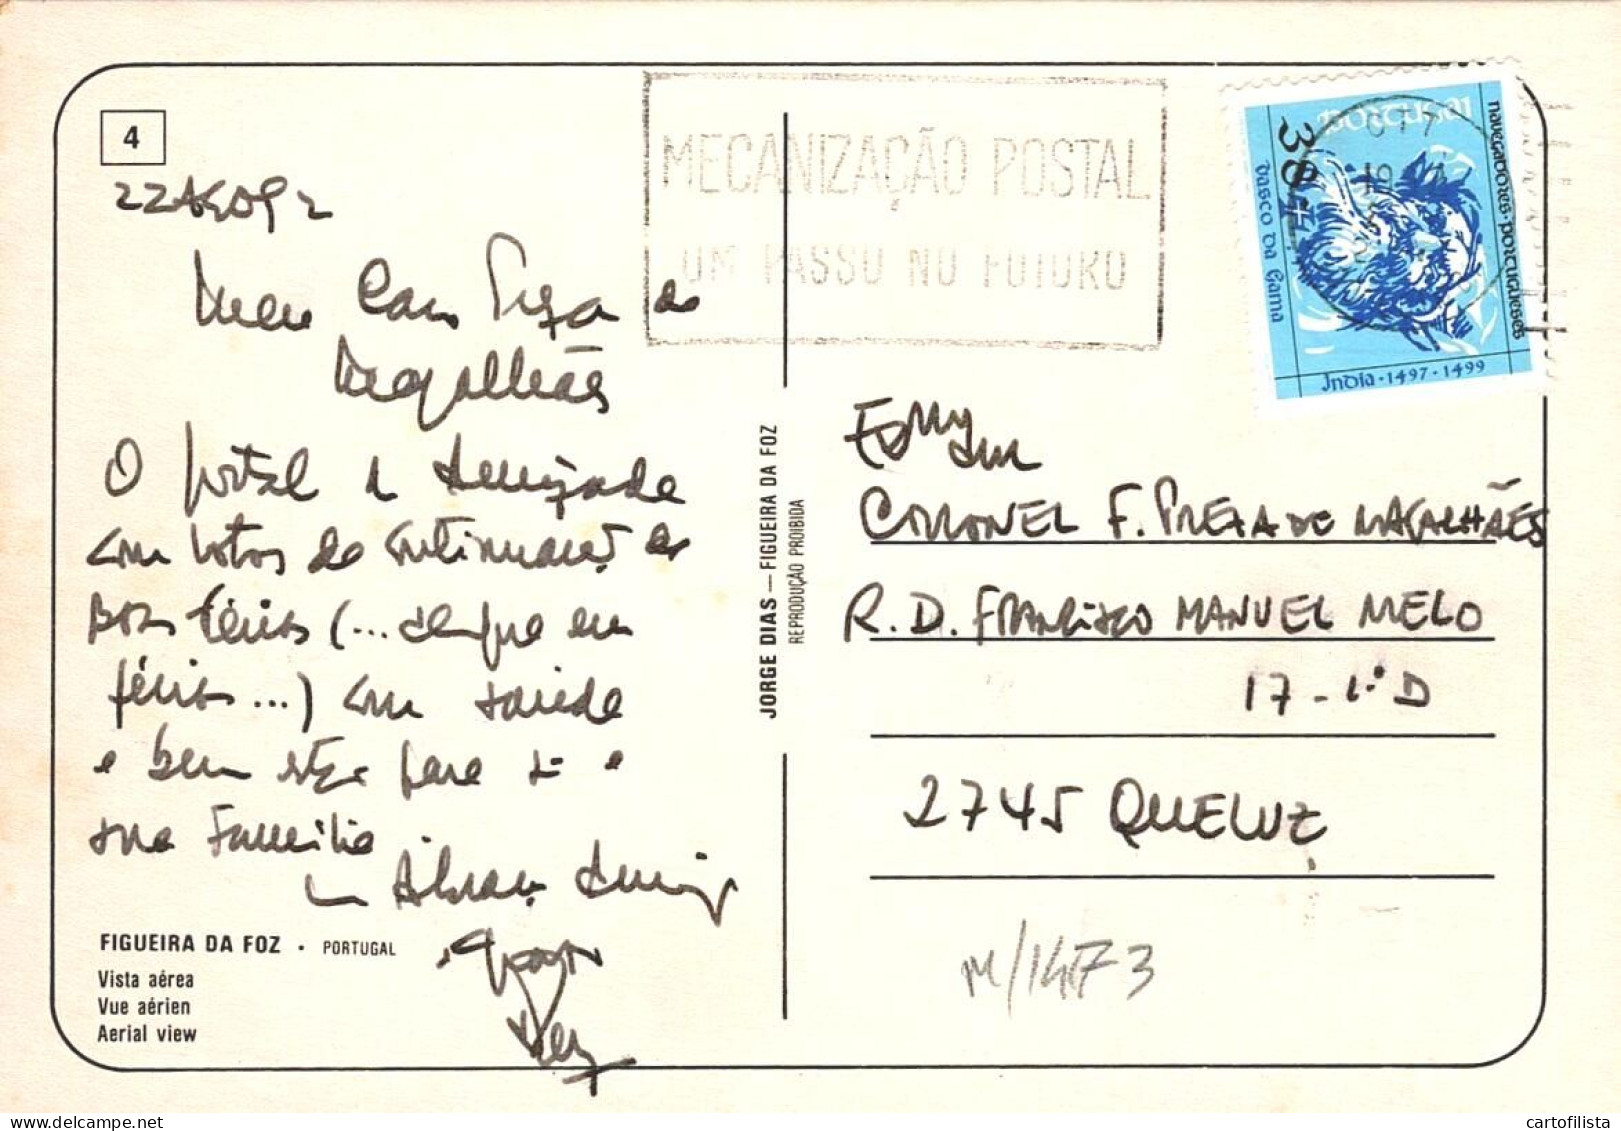 4
22 AGO 92
Meu Caro Preza de
Magalhães
O postal de amizade
com votos de continuação de
boas férias (... sempre em
férias ...) com saúde
e bem estar para si e
sua Família
um Abraço Amigo
FIGUEIRA DA FOZ • PORTUGAL
Vista aérea
Vue aérien
Aerial view
JORGE DIAS — FIGUEIRA DA FOZ
REPRODUÇÃO PROIBIDA
MECANIZAÇÃO POSTAL
UM PASSO NO FUTURO
PORTUGAL
38
navegadores · portugueses
Vasco da Gama
Índia · 1497 · 1499
Exmº Sr
CORONEL F. PREZA DE MAGALHÃES
R. D. FRANCISCO MANUEL MELO
17 - 1º D
2745 QUELUZ
M/1473
cartofilista